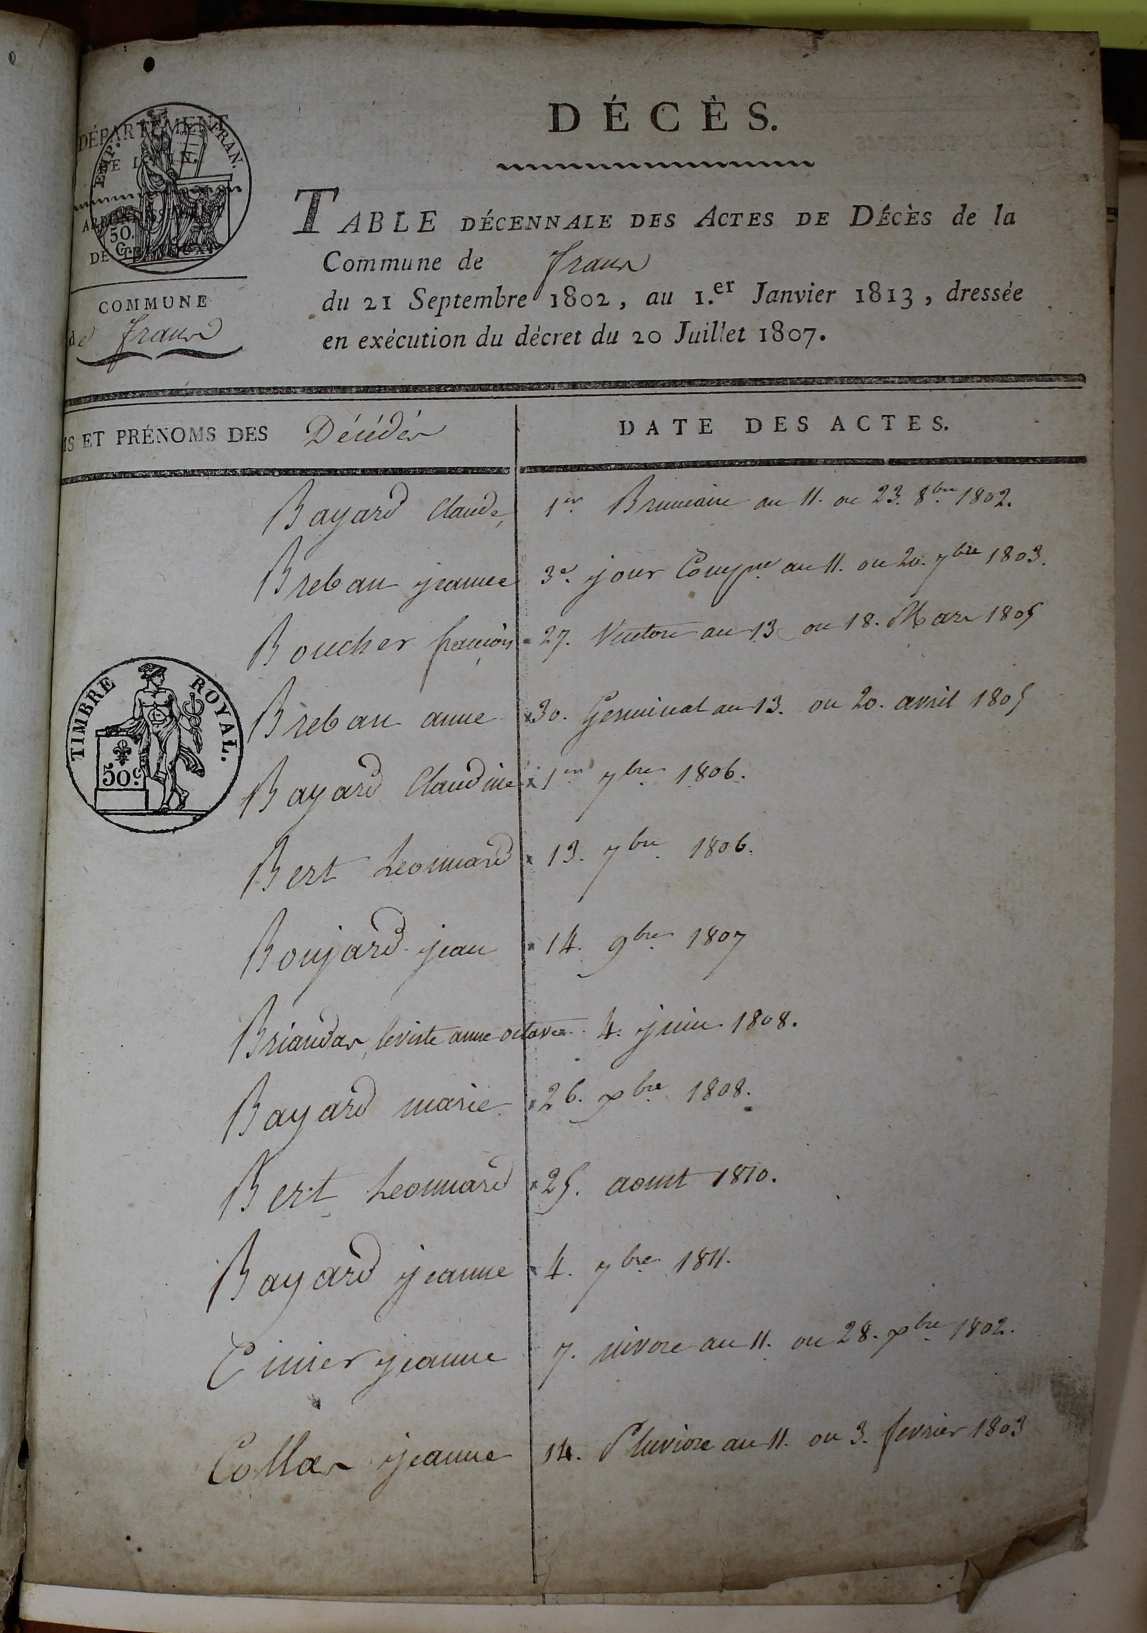 DÉCÈS.
DÉPARTEMENT
DE L'AIN.
EMP. FRAN.
50.
DE TRÉVOUX
COMMUNE
de frans
TABLE DÉCENNALE DES ACTES DE DÉCÈS de la
Commune de frans
du 21 Septembre 1802, au 1.er Janvier 1813, dressée
en exécution du décret du 20 Juillet 1807.
MS ET PRÉNOMS DES Décédés
DATE DES ACTES.
Bayard Claude, 1er Brumaire an 11. ou 23. 8bre 1802.
Breban jeanne 3e. jour Compre an 11. ou 20. 7bre 1803.
Boucher françois 27. Ventose an 13 ou 18. Mars 1805
Breban anne 30. Germinal an 13. ou 20. avril 1805
TIMBRE ROYAL.
50c
Bayard Claudine 1er 7bre 1806.
Bert Leonnard 13. 7bre 1806.
Boujard jean 14. 9bre 1807
Briandas, leviste anne octavie 4. juin 1808.
Bayard marie 26. xbre 1808.
Bert Leonnard 25. aoust 1810.
Bayard jeanne 4. 7bre 1811.
Cinier jeanne 7. nivose an 11. ou 28. xbre 1802.
Collas jeanne 14. Pluviose an 11. ou 3. fevrier 1803